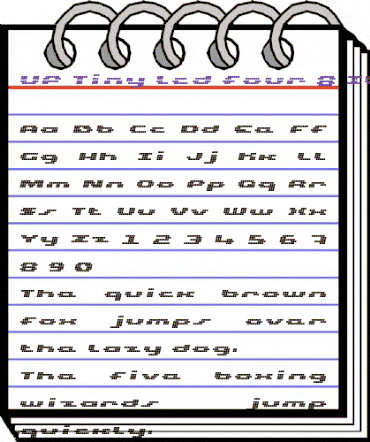 UP Tiny Lcd Four 8 I
Aa Bb Cc Dd Ee Ff
Gg Hh Ii Jj Kk Ll
Mm Nn Oo Pp Qq Rr
Ss Tt Uu Vv Ww Xx
Yy Zz 1 2 3 4 5 6 7
8 9 0
The quick brown
fox jumps over
the lazy dog.
The five boxing
wizards jump
quickly.